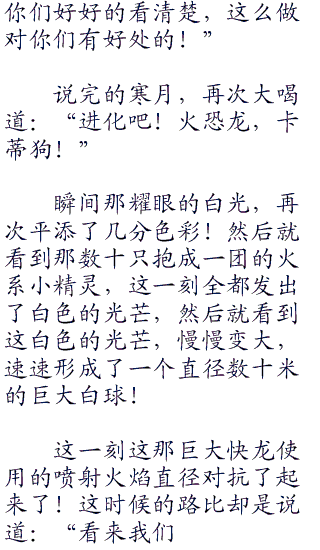 你们好好的看清楚，这么做
对你们有好处的！”
说完的寒月，再次大喝
道：“进化吧！火恐龙，卡
蒂狗！”
瞬间那耀眼的白光，再
次平添了几分色彩！然后就
看到那数十只抱成一团的火
系小精灵，这一刻全都发出
了白色的光芒，然后就看到
这白色的光芒，慢慢变大，
速速形成了一个直径数十米
的巨大白球！
这一刻这那巨大快龙使
用的喷射火焰直径对抗了起
来了！这时候的路比却是说
道：“看来我们